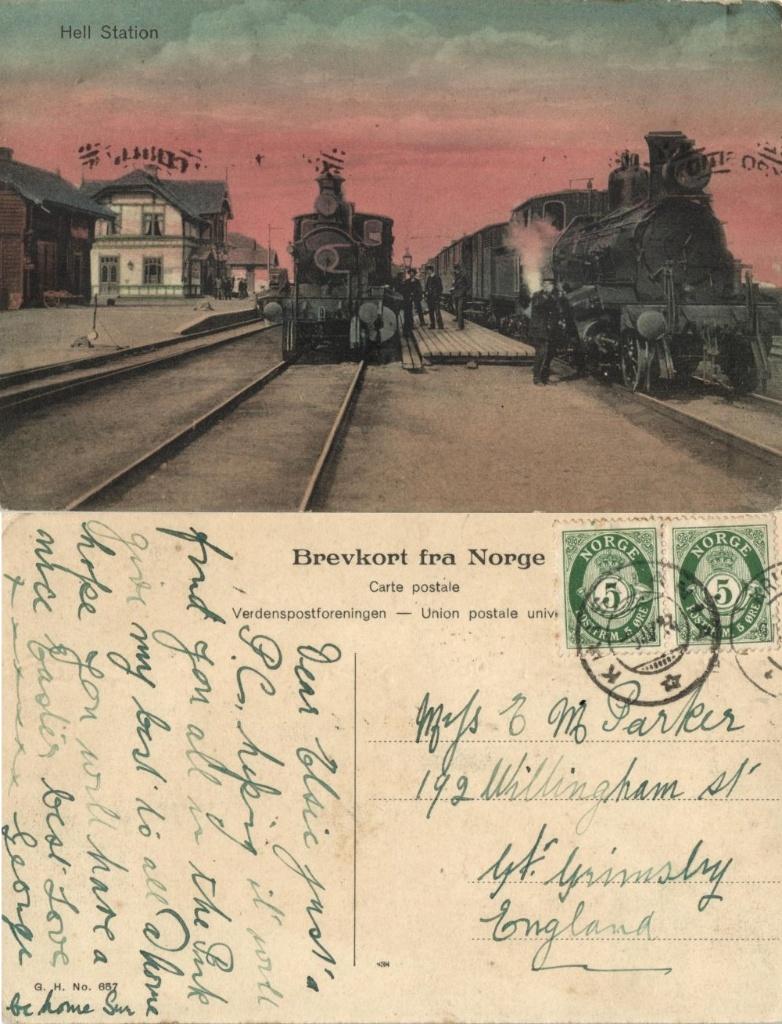 Hell Station
Brevkort fra Norge
Carte postale
Verdenspostforeningen — Union postale univ
NORGE
5
POSTFRM. 5 ØRE
NORGE
5
POSTFRM. 5 ØRE
K
Miss E M Parker
192 Willingham st
Gt. Grimsby
England
Dear Elsie just a
P.C. hoping it will
find you all in the Pink
give my best to all I hope
hope you will have a
nice Easter best Love
George
be home Sun
G. H. No. 657